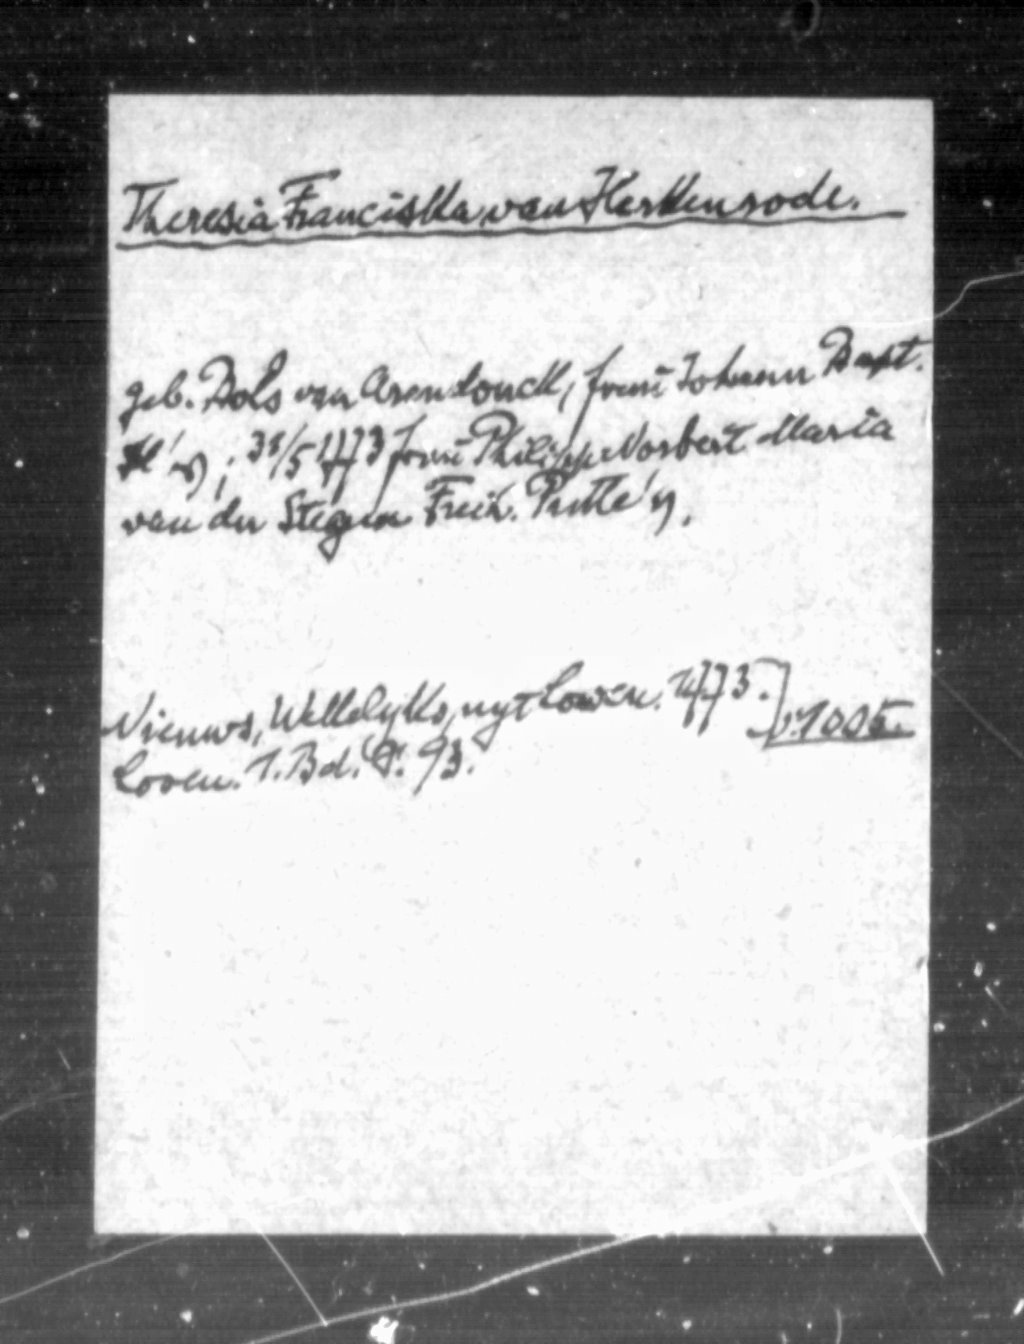 Theresia Franciska van Herkenrode.
geb. Bols van Arendonck, frau Johann Bapt.
H' ; 31/5 1773 frau Philipp Norbert Maria
van der Stegen Freih. Putte'
Nieuws, Wekelyks, uyt Loven. 1773.
Loven. 1. Bd. S. 93. 1005.